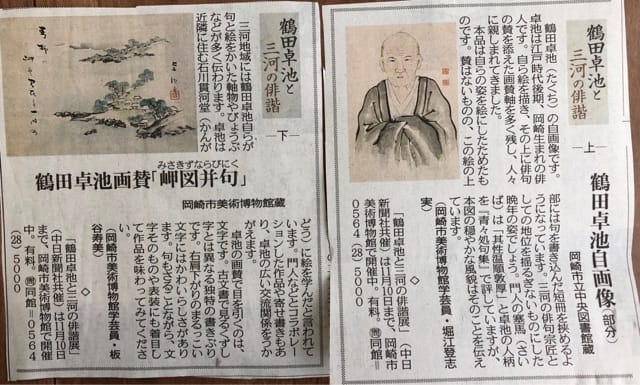 鶴田卓池と
三河の俳諧
―上―
鶴田卓池自画像(部分)
岡崎市立中央図書館蔵
鶴田卓池(たくち)の自画像です。
卓池は江戸時代後期、岡崎生まれの俳
人です。自ら絵を描き、その上に俳句
の賛を添えた画賛軸を多く残し、人々
に親しまれてきました。
本品は自らの姿を絵にしたためたも
のです。賛はないものの、この絵の上
部には句を書き込んだ短冊を挟めるよ
うになっています。三河の俳句宗匠と
しての地位を揺るぎないものにした
晩年の姿でしょう。門人の塞馬(さい
ば)は「其性温順敦厚」と卓池の人柄
を『青々処句集』で評していますが、
本図の穏やかな風貌はそのことを伝え
ています。
(岡崎市美術博物館学芸員・堀江登志
実)
◇
「鶴田卓池と三河の俳諧展」(中日
新聞社共催)は11月10日まで、岡崎市
美術博物館で開催中。有料。㉄同館=
0564(28)5000
鶴田卓池と
三河の俳諧
―下―
みさきずならびにく
鶴田卓池画賛「岬図并句」
岡崎市美術博物館蔵
三河地域には鶴田卓池自らが
句と絵をかいた軸物やびょうぶ
などが多く伝わります。卓池は
近隣に住む石川貫河堂(かんが
どう)に絵を学んだと言われて
います。門人などとコラボレー
ションした作品や寄せ書きもあ
り、卓池の広い交流関係をうか
がえます。
卓池の画賛で目を引くのは、
文字です。古文書で見るくずし
字とは異なる独特の書きぶり
です。右肩下がりのまるっこい
文字にはかわいらしさがありま
す。句もさることながら、文
字そのものや表装にも着目し
て作品を味わってみてくださ
い。
(岡崎市美術博物館学芸員・板
谷寿美)
◇
「鶴田卓池と三河の俳諧展」
(中日新聞社共催)は11月10日
まで、岡崎市美術博物館で開催
中。有料。㉄同館=0564
(28)5000